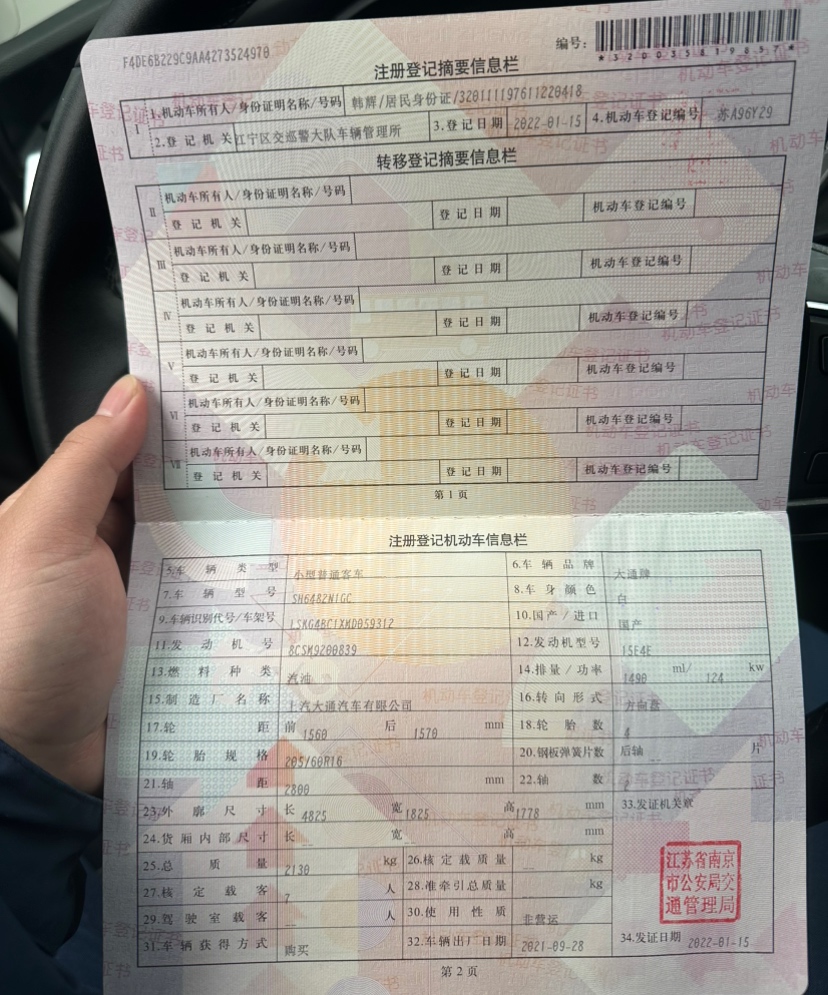 F4DE6B229C9AA4273524970
编号:
*320035819857*
注册登记摘要信息栏
I 1.机动车所有人/身份证明名称/号码 韩辉/居民身份证/320111197611220418
2.登记机关 江宁区交巡警大队车辆管理所 3.登记日期 2022-01-15 4.机动车登记编号 苏A96Y29
转移登记摘要信息栏
II 机动车所有人/身份证明名称/号码
登记机关 登记日期 机动车登记编号
III 机动车所有人/身份证明名称/号码
登记机关 登记日期 机动车登记编号
IV 机动车所有人/身份证明名称/号码
登记机关 登记日期 机动车登记编号
V 机动车所有人/身份证明名称/号码
登记机关 登记日期 机动车登记编号
VI 机动车所有人/身份证明名称/号码
登记机关 登记日期 机动车登记编号
VII 机动车所有人/身份证明名称/号码
登记机关 登记日期 机动车登记编号
第1页
注册登记机动车信息栏
5.车辆类型 小型普通客车 6.车辆品牌 大通牌
7.车辆型号 SH6482N1GC 8.车身颜色 白
9.车辆识别代号/车架号 LSKG4BC1XMD059312 10.国产/进口 国产
11.发动机号 8CSM9200839 12.发动机型号 15E4E
13.燃料种类 汽油 14.排量/功率 1490 ml/ 124 kw
15.制造厂名称 上汽大通汽车有限公司 16.转向形式 方向盘
17.轮距 前 1560 后 1570 mm 18.轮胎数 4
19.轮胎规格 205/60R16 20.钢板弹簧片数 后轴 片
21.轴距 2800 mm 22.轴数
23.外廓尺寸 长 4825 宽 1825 高 1778 mm 33.发证机关章
24.货厢内部尺寸 长 宽 高 mm
25.总质量 2130 kg 26.核定载质量 kg
27.核定载客 7 人 28.准牵引总质量 kg
29.驾驶室载客 人 30.使用性质 非营运
31.车辆获得方式 购买 32.车辆出厂日期 2021-09-28 34.发证日期 2022-01-15
江苏省南京
市公安局交
通管理局
第2页